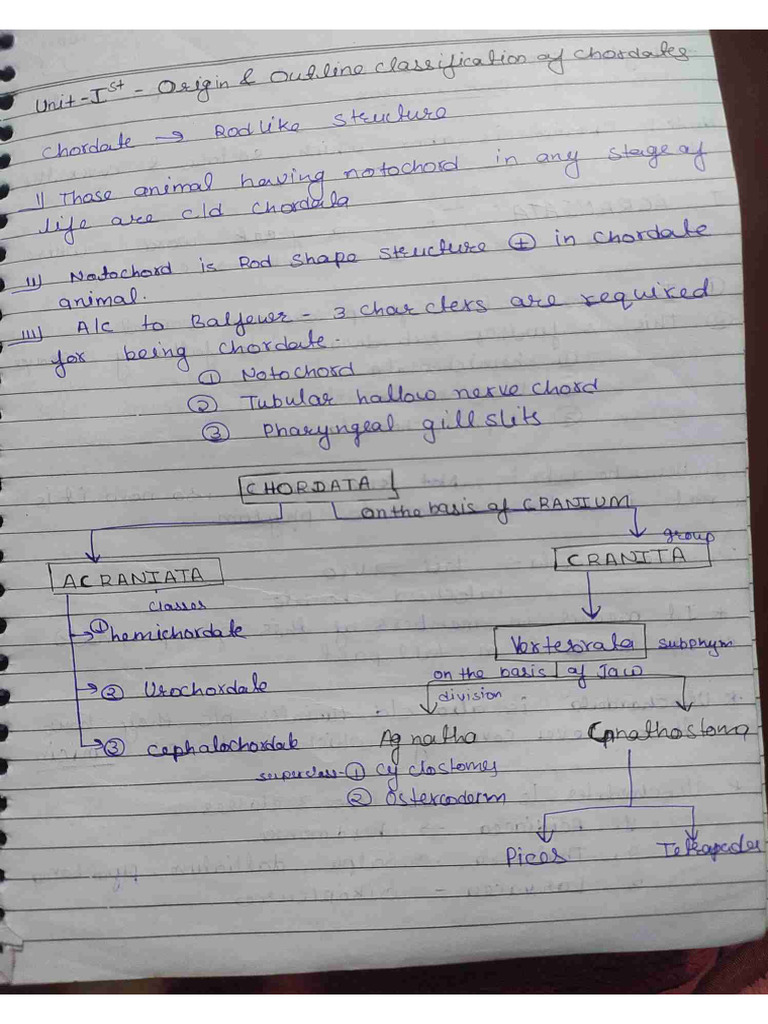 Unit-Ist - Origin & Outline classification of chordates
Chordate → Rod like structure
i) Those animal having notochord in any stage of
life are c/d chordata
ii) Notochord is Rod shape structure ⊕ in chordate
animal.
iii) A/c to Balfeuer - 3 characters are required
for being chordate.
① Notochord
② Tubular hallow nerve chord
③ Pharyngeal gill slits
CHORDATA
on the basis of CRANIUM
group
ACRANIATA
CRANITA
classes
① hemichordate
Vertebrata subphym
on the basis of Jaw
② Urochordate
division
③ cephalochordate
Agnatha
Gnathostoma
superclass - ① Cyclostomes
② Ostercoderm
Pices
Tetrapodes